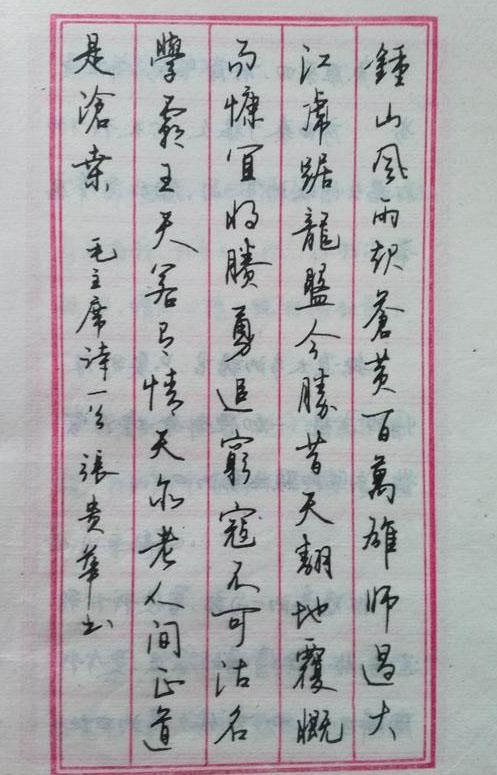 鍾山風雨起蒼黃百萬雄師過大
江虎踞龍盤今勝昔天翻地覆慨
而慷宜將賸勇追窮寇不可沽名
學霸王天若有情天亦老人間正道
是滄桒 毛主席詩一首 張貴華书